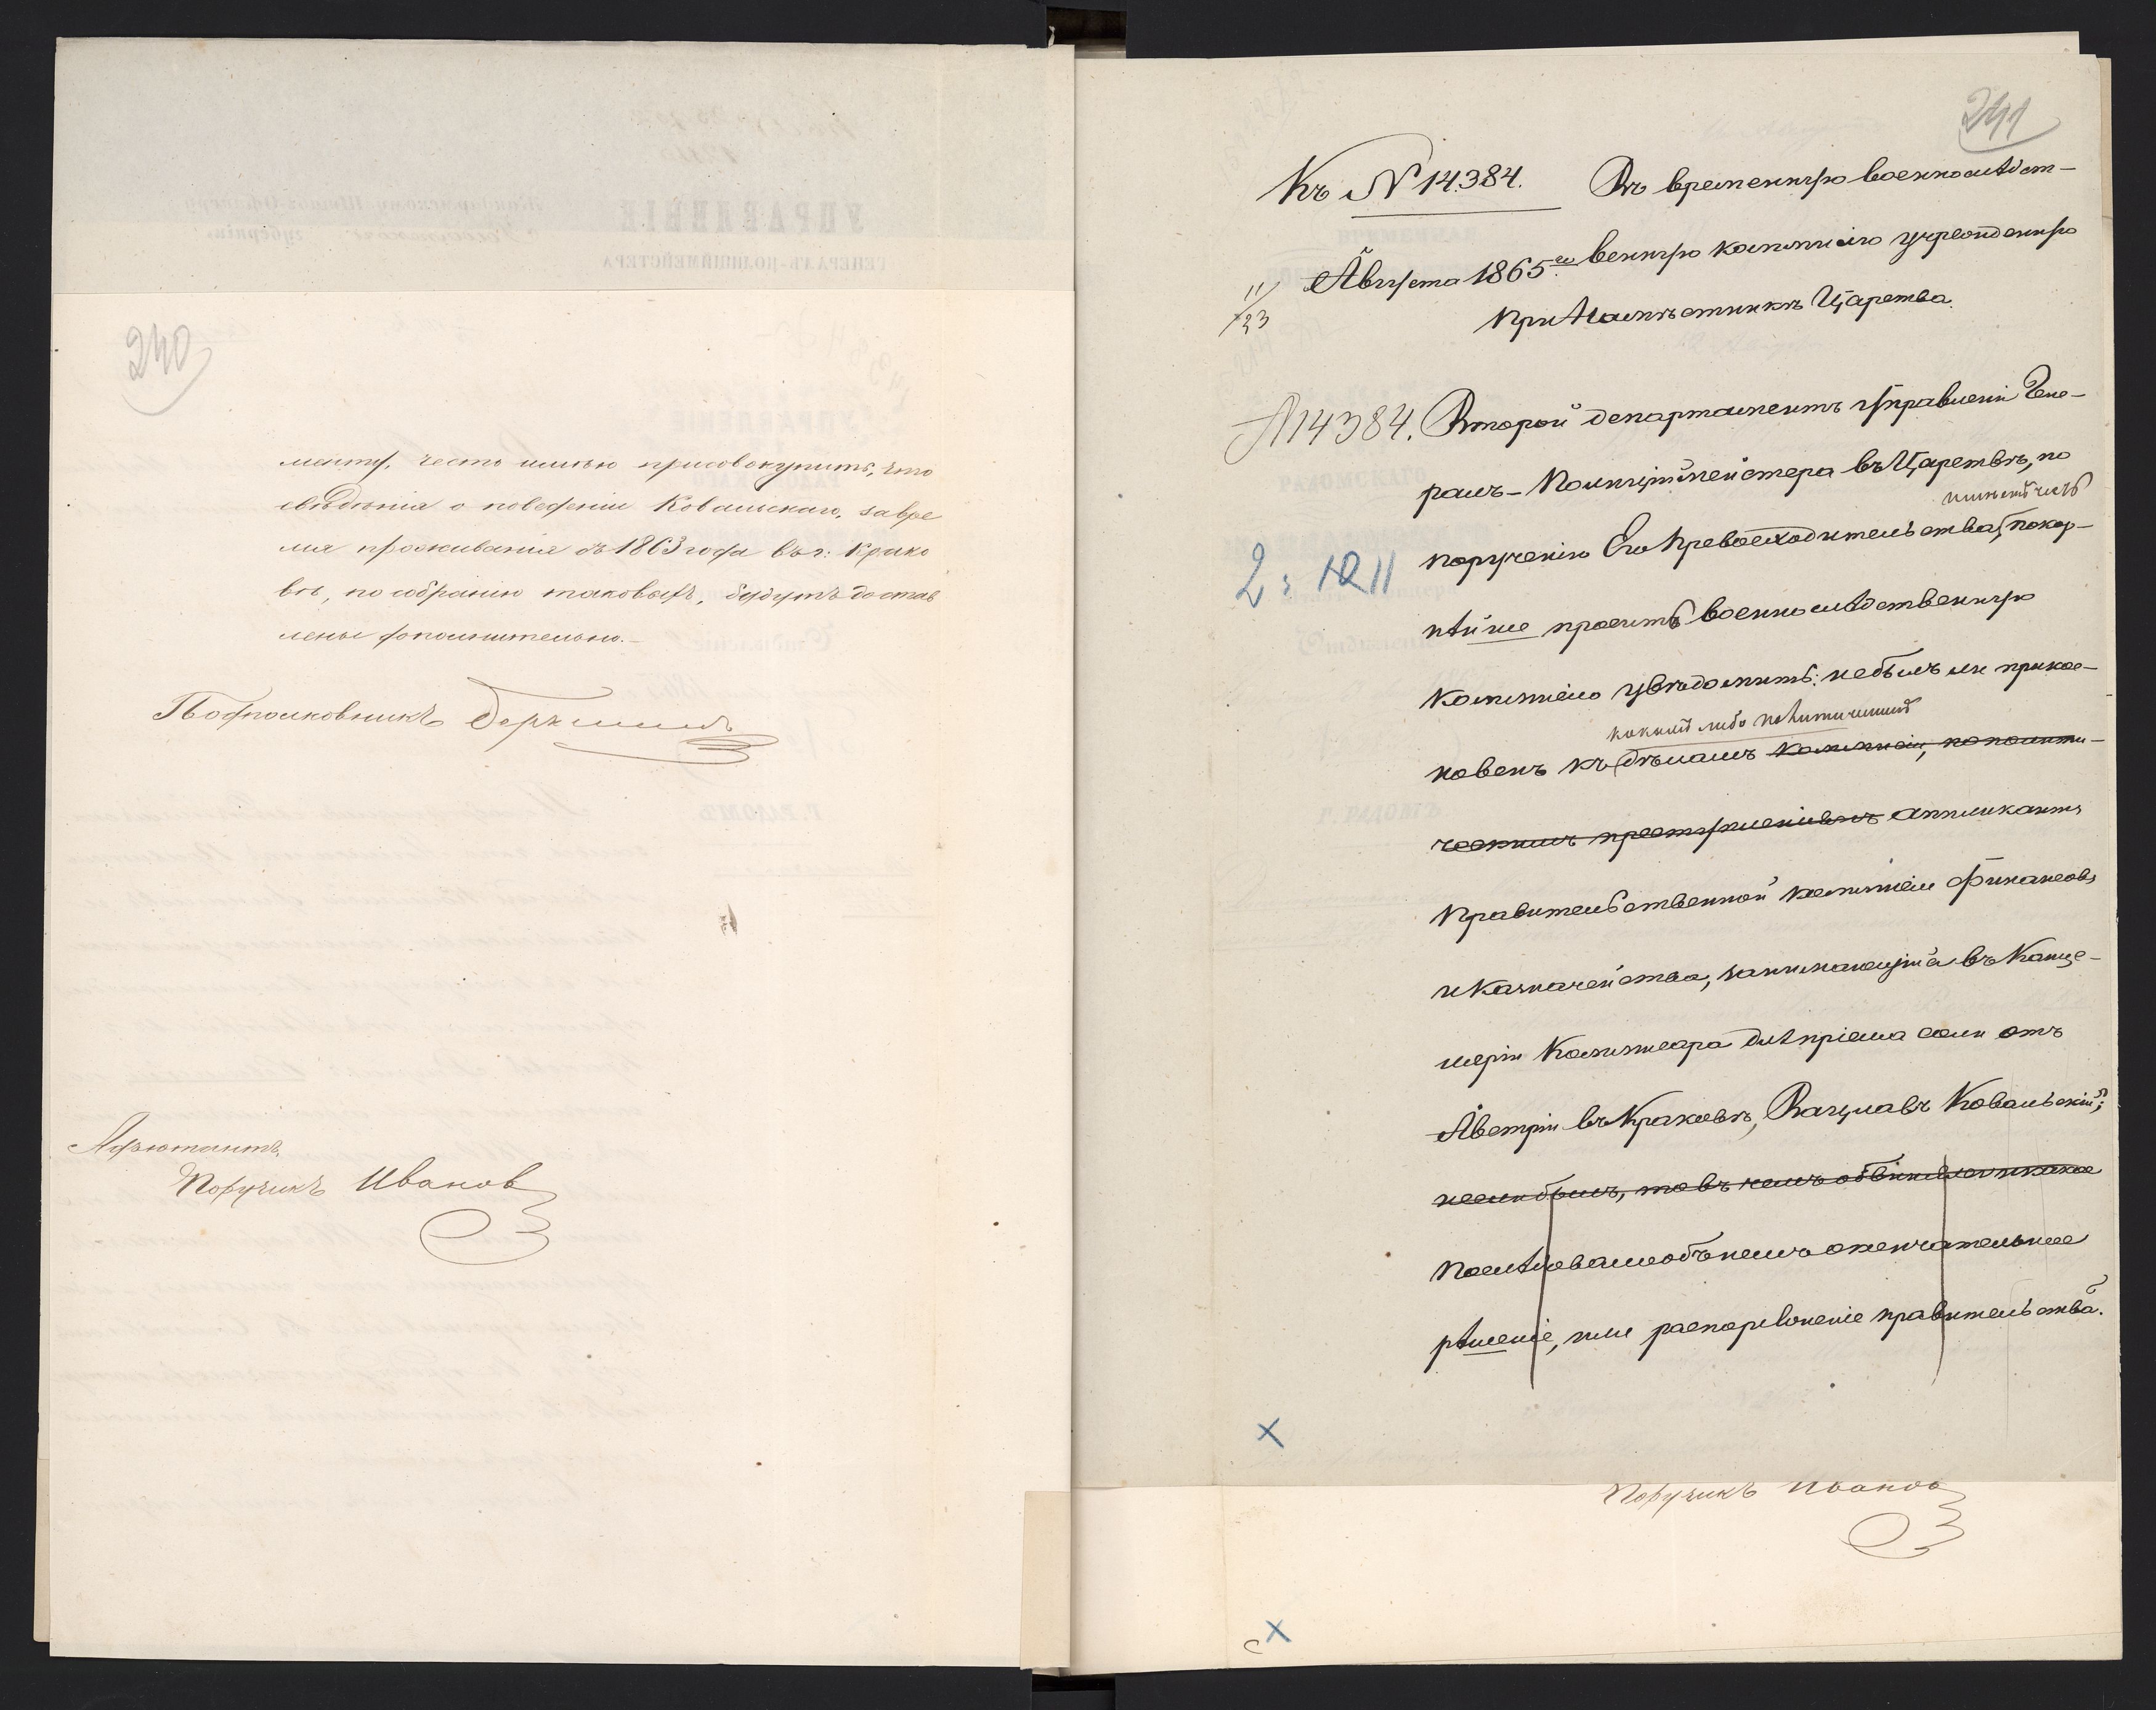 240
менту, честь имѣю присовокупить, что
свѣдѣнія о поведеніи Ковальскаго, за вре
мя проживанія въ 1863 года въ г: Крако
вѣ, по собранію таковыхъ, будутъ достав
лены дополнительно.
Подполковникъ
Адъютантъ,
Поручикъ Иванов
241
Къ № 14384.
11/23 Августа 1865 го
Въ временную военнослѣдст-
венную коммисію учрежденную
при Намѣстникѣ Царства.
№ 14384.
2: 10 11
Второй департаментъ Управленія Гене-
ралъ-Полиціймейстера въ Царствѣ, по
имѣетъ честь
порученію Его Превосходительства, покор-
нѣйше проситъ военнослѣдственную
коммисію увѣдомить: не былъ ли прикос-
какимъ либо политическимъ
новенъ къ дѣламъ коммисіи, по полити-
ческимъ преступленіямъ аппликантъ
Правительственной коммисіи Финансовъ
и Казначейства, занимающійся въ Канце-
ляріи Коммисара для пріема соли отъ
Австріи въ Краковѣ, Вацлавъ Ковальскій;
если былъ, то въ чемъ обвинялся и какое
послѣдовало объ немъ окончательное
рѣшеніе, или распоряженіе правительства.
Поручикъ Иванов